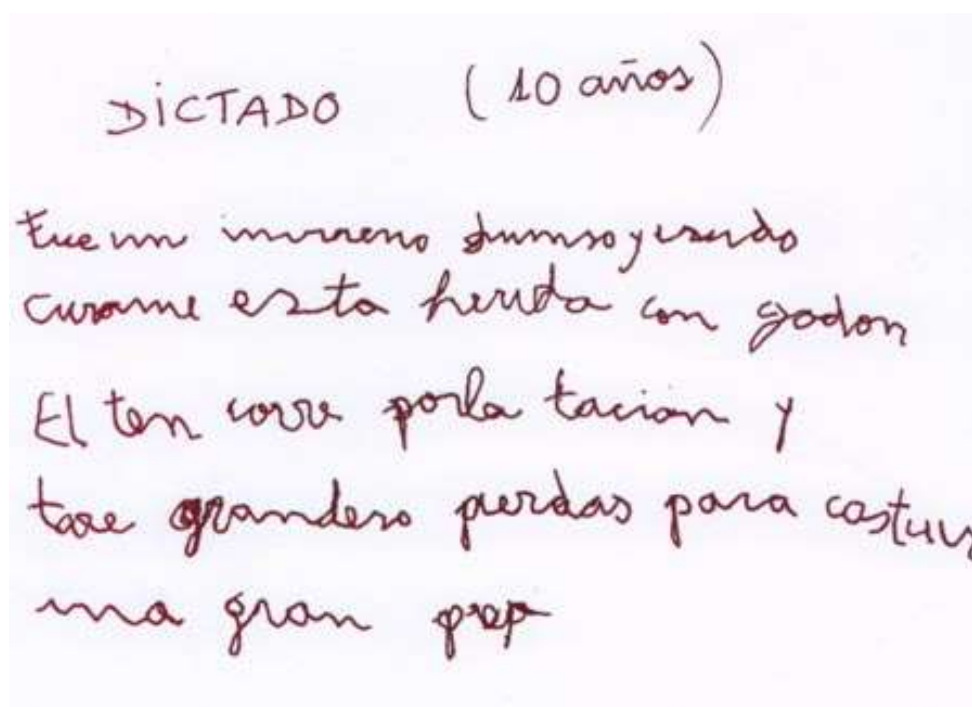 DICTADO (10 años)
Fue un invierno dumso y crudo
curame esta heruda con godon
El ten corre porla tacion y
tare grandeso pierdas para castuir
una gran prep